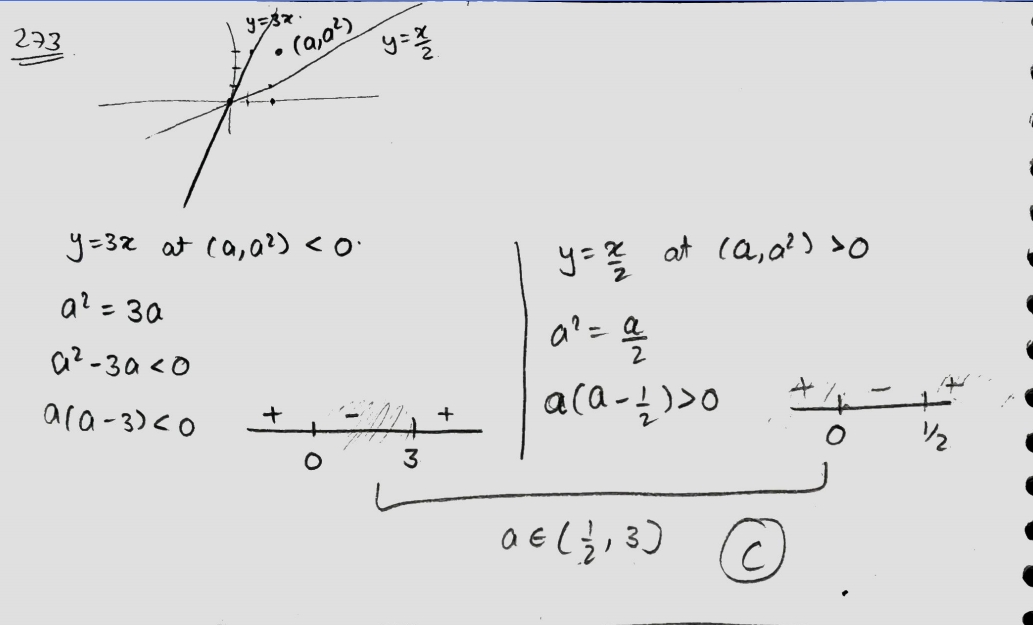 273
y=3x
(a,a²)
y=x/2
y=3x at (a,a²) < 0
a² = 3a
a² - 3a < 0
a(a-3) < 0
+ - +
0 3
y = x/2 at (a,a²) > 0
a² = a/2
a(a - 1/2) > 0
+ - +
0 1/2
a ∈ (1/2, 3)
C